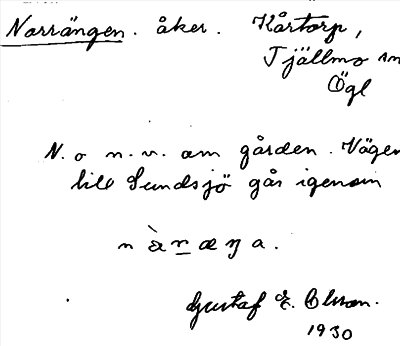 Norrängen. åker. Kårtorp,
Tjällmo sn
Ögl
N. o n.v. om gården. Vägen
till Sundsjö går igenom
n à r æ ŋ a.
Gustaf E. Olsson.
1930